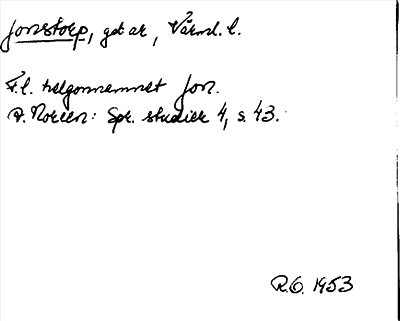 Jonstorp, gdar, Värml. l.
F.l. helgonnamnet Jon.
A. Noreen: Spr. studier 4, s. 43.
R.O. 1953